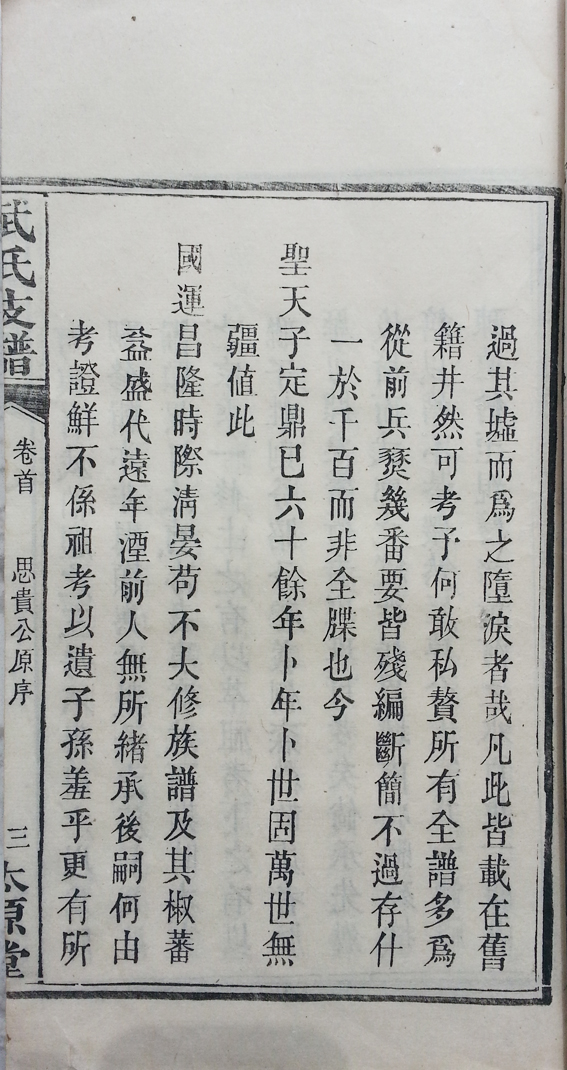 過其墟而爲之墮淚者哉凡此皆載在舊
籍井然可考予何敢私贅所有全譜多爲
從前兵燹幾番要皆殘編斷簡不過存什
一於千百而非全牒也今
聖天子定鼎已六十餘年卜年卜世固萬世無
疆値此
國運昌隆時際淸晏苟不大修族譜及其椒蕃
益盛代遠年湮前人無所緒承後嗣何由
考證鮮不係祖考以遺子孫羞乎更有所
武氏支譜
卷首
思貴公原序
三
太原堂